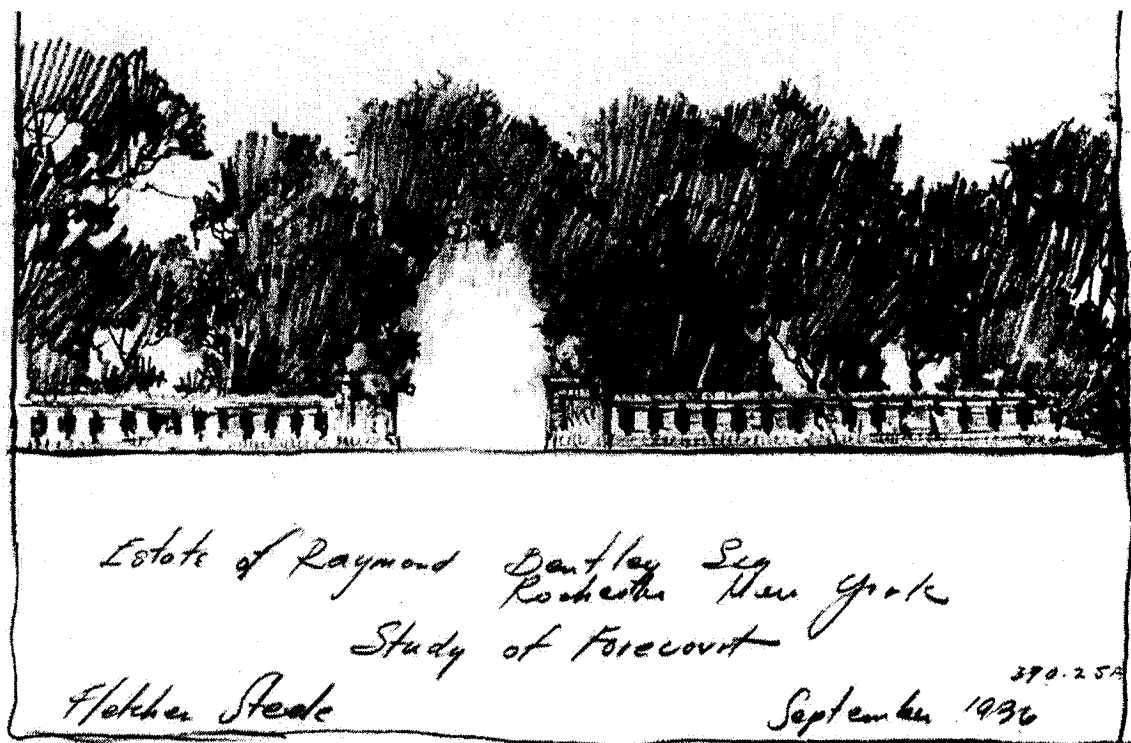 Estate of Raymond Bentley Esq
Rochester New York
Study of Forecourt
390.25A
Fletcher Steele
September 1936